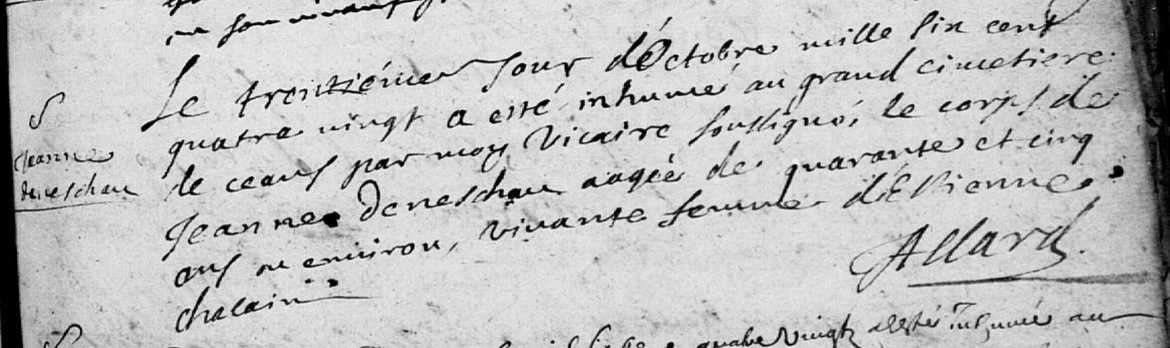 ou son vivant
Le trentziéme Jour dé Octobre mille six cent
quatre vingt a esté inhumé au grand cimetiere
S
de ceans par moy Vicaire soussigné, le corps de
Jeanne
deneschau
Jeanne Deneschau aagée de quarante et cinq
ans ou environ, vivante femme d'Estienne
chalain
Allard
quatre vingt a esté Inhumé au